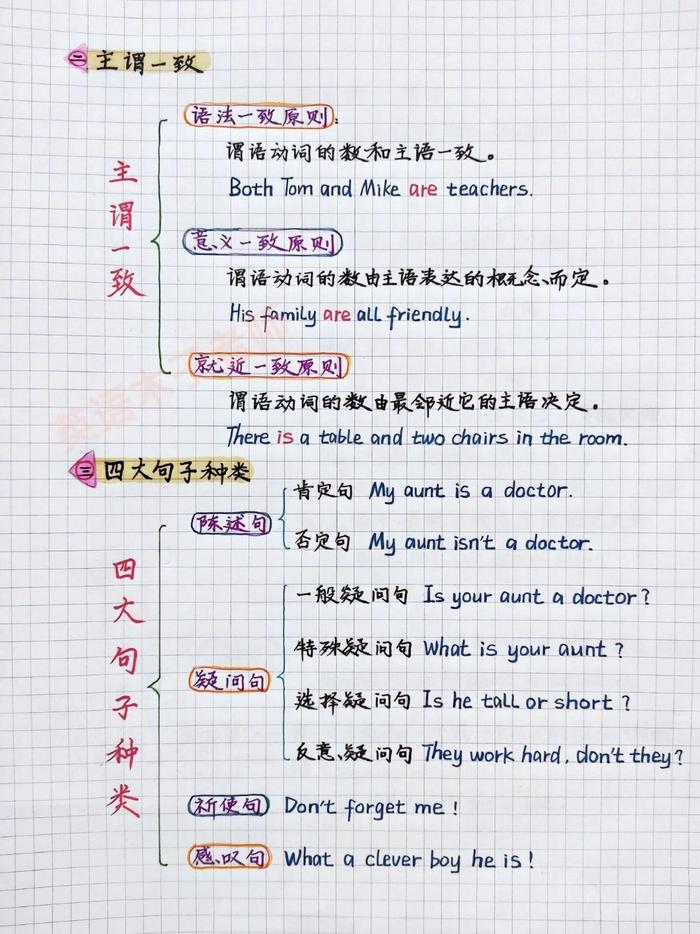 二 主谓一致
主谓一致
语法一致原则：
谓语动词的数和主语一致。
Both Tom and Mike are teachers.
意义一致原则
谓语动词的数由主语表达的概念而定。
His family are all friendly.
就近一致原则
谓语动词的数由最邻近它的主语决定。
There is a table and two chairs in the room.
三 四大句子种类
四大句子种类
陈述句
肯定句 My aunt is a doctor.
否定句 My aunt isn't a doctor.
疑问句
一般疑问句 Is your aunt a doctor?
特殊疑问句 What is your aunt?
选择疑问句 Is he tall or short?
反意疑问句 They work hard, don't they?
祈使句 Don't forget me!
感叹句 What a clever boy he is!